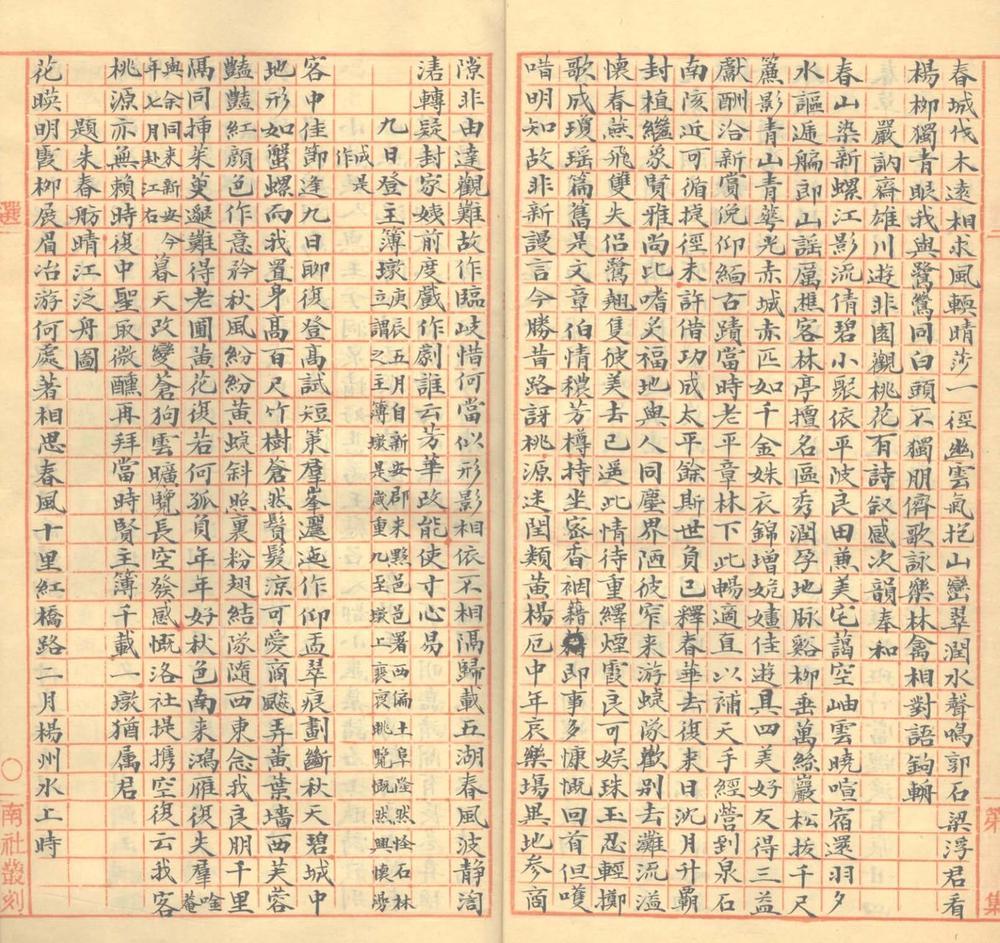 春城伐木遠相求風輭晴莎一徑幽雲氣抱山巒翠潤水聲鳴郭石梁浮君看
楊柳獨青眼我與鷺鷥同白頭不獨朋儕歌詠樂林禽相對語鉤輈
嚴訥齋雄川遊非園觀桃花有詩叙感次韻奉和
春山染新螺江影流倩碧小聚依平波良田兼美宅藹空岫雲曉喧宿還羽夕
水謳遞觴即山謡屬樵客林亭擅名區秀潤孕地脈谿柳垂萬絲巖松拔千尺
簾影青山青華光赤城赤匹如千金姝衣錦增姽嫿佳遊具四美好友得三益
獻酬洽新賞況仰緬古蹟當時老平章林下此暢適直以補天手經營到泉石
南陔近可循捉徑未許借功成太平餘斯世負已釋春華去復來日沈月升霸
封植繼象賢雅尚比嗜炙福地與人同塵界陋彼窄来游蜨隊歡别去灘流溢
懷春燕飛雙失侣鷺翹隻彼美去已遥此情待重繹煙霞良可娱珠玉忍輕擲
歌成瓊瑶篇舊是文章伯情穠芳樽持坐密香裀藉即事多慷慨回首但嚄
唶明知故非新謾言今勝昔路訝桃源迷閏類黄楊厄中年哀樂場異地参商
隙非由達觀難故作臨岐惜何當似形影相依不相隔歸載五湖春風波静淘
渚轉疑封家姨前度戲作劇誰云芳華改能使寸心易
九日登主簿墩庚辰五月自新安郡来黟邑邑署西偏土阜隆然恰石林立謂之主簿墩是歲重九至墩上裵裒眺覽慨然興懷漫成是作
客中佳節逢九日聊復登高試短策羣峯邐迤作仰盂翠痕劃斷秋天碧城中
地形如蟹螺而我置身高百尺竹樹蒼然鬢髮涼可愛商飈弄黄葉墻西芙蓉
豔豔紅顔色作意矜秋風紛紛黄蜨斜照裏粉翅結隊隨西東念我良朋千里
隔同插茱萸邈難得老圃黄花復若何孤負年年好秋色南来鴻雁復失羣唫庵
與余同来新安今年七月赴江右暮天改變蒼狗雲曠覽長空發感慨洛社提攜空復云我客
桃源亦無賴時復中聖取微醺再拜當時賢主簿千載一墩猶属君
題朱春舫晴江泛舟圖
花暎明霞柳展眉冶游何處著相思春風十里紅橋路二月楊州水上時
選
第
集
南社叢刻